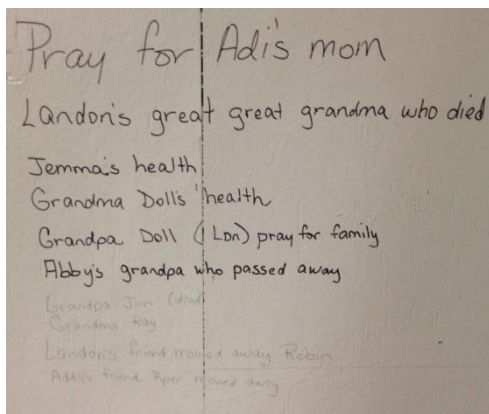 Pray for Adi's mom
Landon's great great grandma who died
Jemma's health
Grandma Doll's health
Grandpa Doll (1 Ldn) pray for family
Abby's grandpa who passed away
Grandpa Jim (died)
Grandma Kay
Landon's friend moved away Robin
Addy's friend Piper moved away